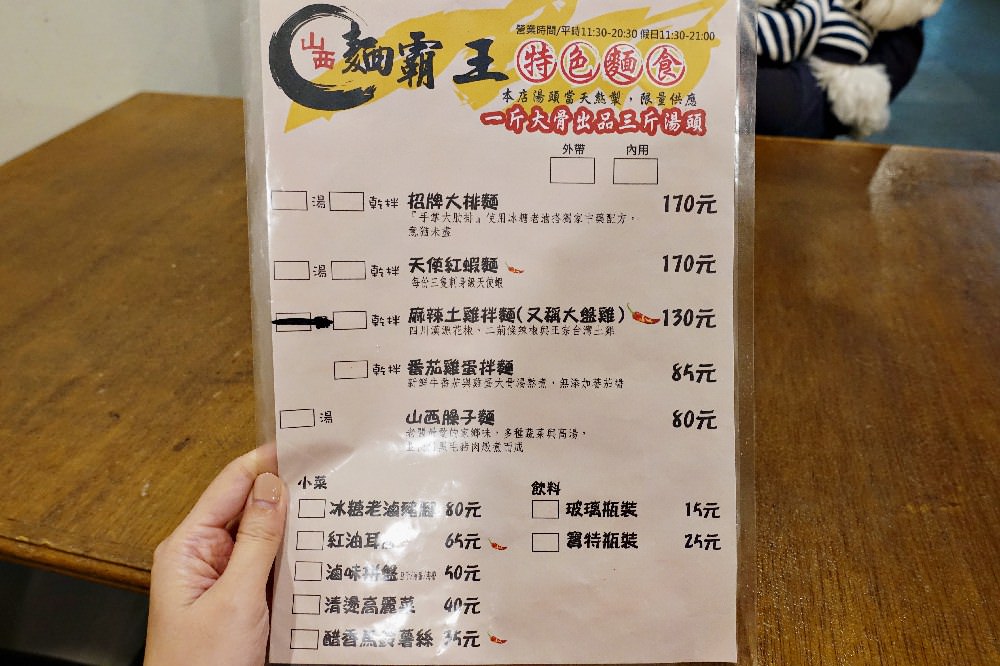 山西
麵霸王
營業時間/平時11:30-20:30 假日11:30-21:00
特色麵食
本店湯頭當天熬製，限量供應
一斤大骨出品三斤湯頭
外帶 內用
湯 乾拌 招牌大排麵 170元
使用冰糖老滷搭獨家中藥配方，
意猶未盡
湯 乾拌 天使紅蝦麵 170元
每份三隻刺身級天使蝦
乾拌 麻辣土雞拌麵(又稱大盤雞) 130元
四川漢源花椒、二荊條辣椒與正宗台灣土雞
乾拌 番茄雞蛋拌麵 85元
新鮮牛番茄與雞蛋大骨湯熬煮，無添加蕃茄醬
湯 山西臊子麵 80元
家鄉味，多種蔬菜與高湯，
黑毛豬肉燉煮而成
小菜 飲料
冰糖老滷豬腳 80元 玻璃瓶裝 15元
紅油耳 65元 寶特瓶裝 25元
滷味拼盤 50元
清燙高麗菜 40元
醋香馬鈴薯絲 35元